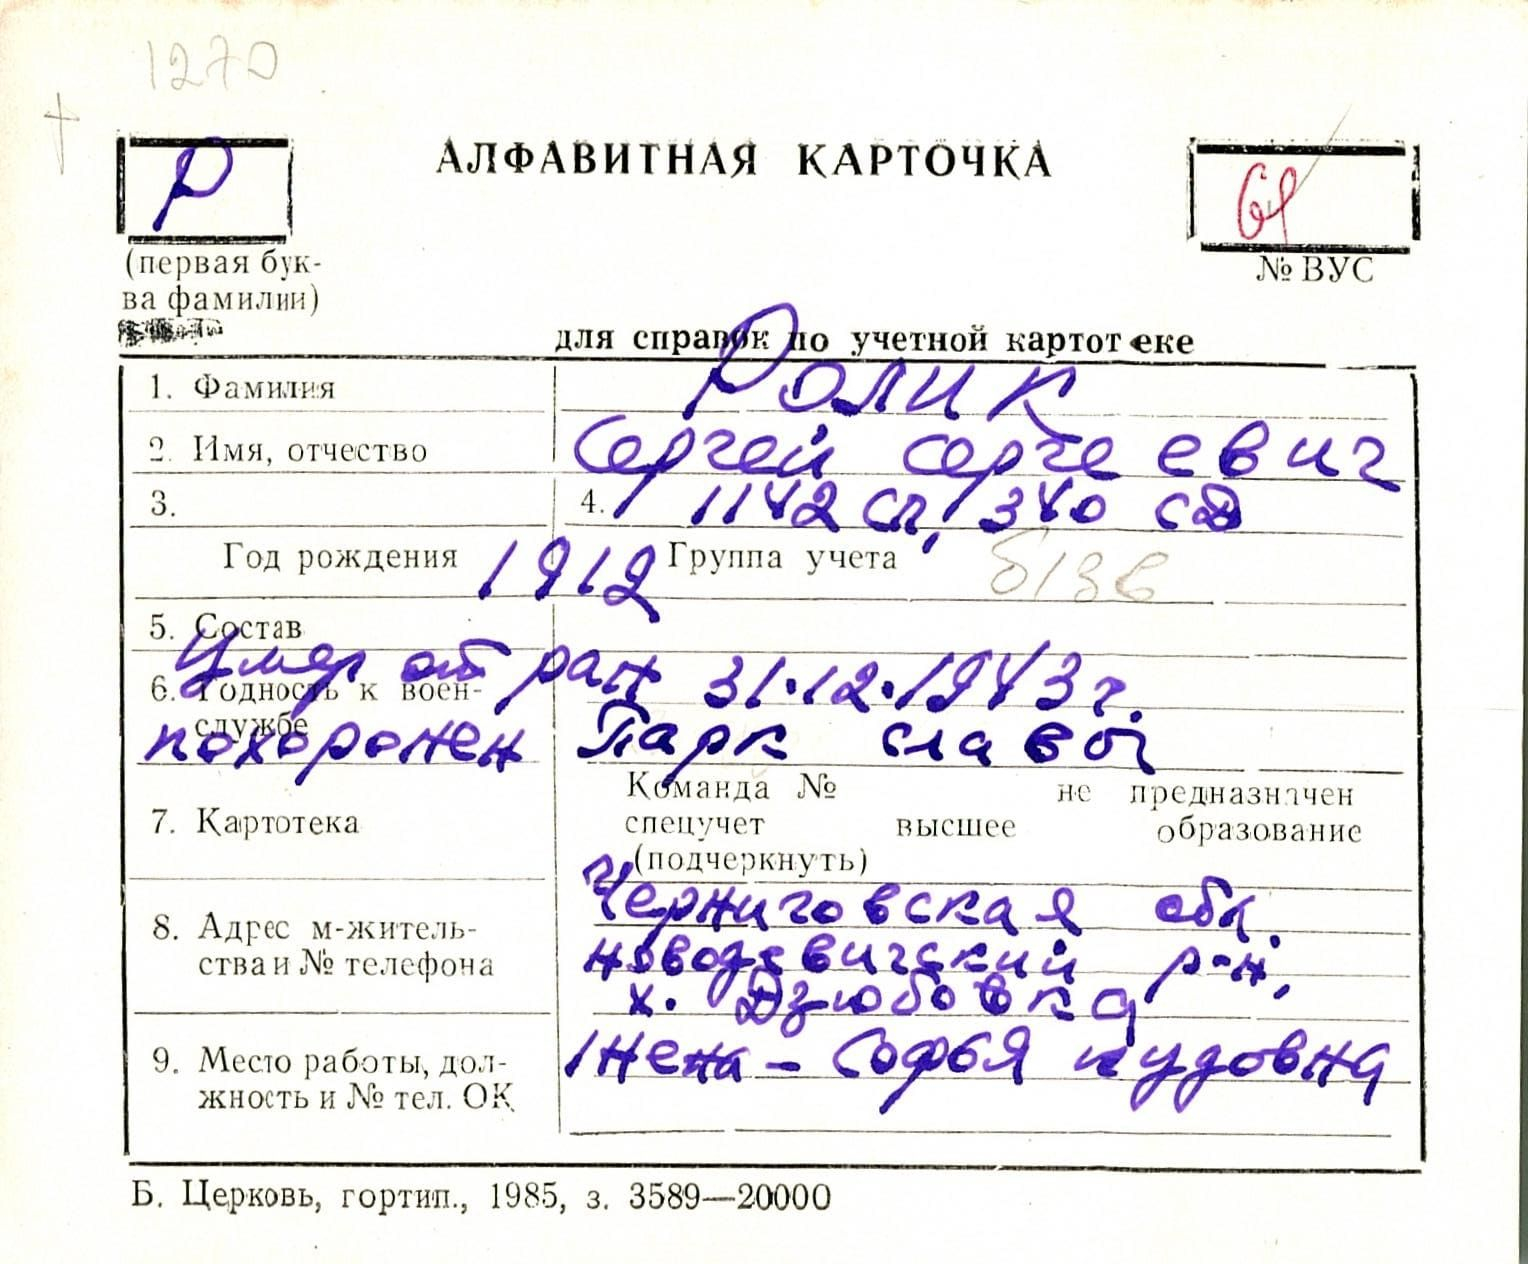 1270
Р
АЛФАВИТНАЯ КАРТОЧКА
61
(первая бук-
ва фамилии)
№ ВУС
для справок по учетной картотеке
1. Фамилия Ролик
2. Имя, отчество Сергей Сергеевич
3. 4. 1142 сп, 340 сд
Год рождения 1912 Группа учета
5. Состав
Умер от ран 31.12.1943 г.
6. Годность к воен-
службе
похоронен Парк славы
Команда № не предназначен
7. Картотека спецучет высшее образование
(подчеркнуть)
Черниговская обл.
8. Адрес м-житель-
ства и № телефона новодевичский р-н,
х. Дзюбовка
9. Место работы, дол-
жность и № тел. ОК жена - Софья
Б. Церковь, гортип., 1985, з. 3589—20000